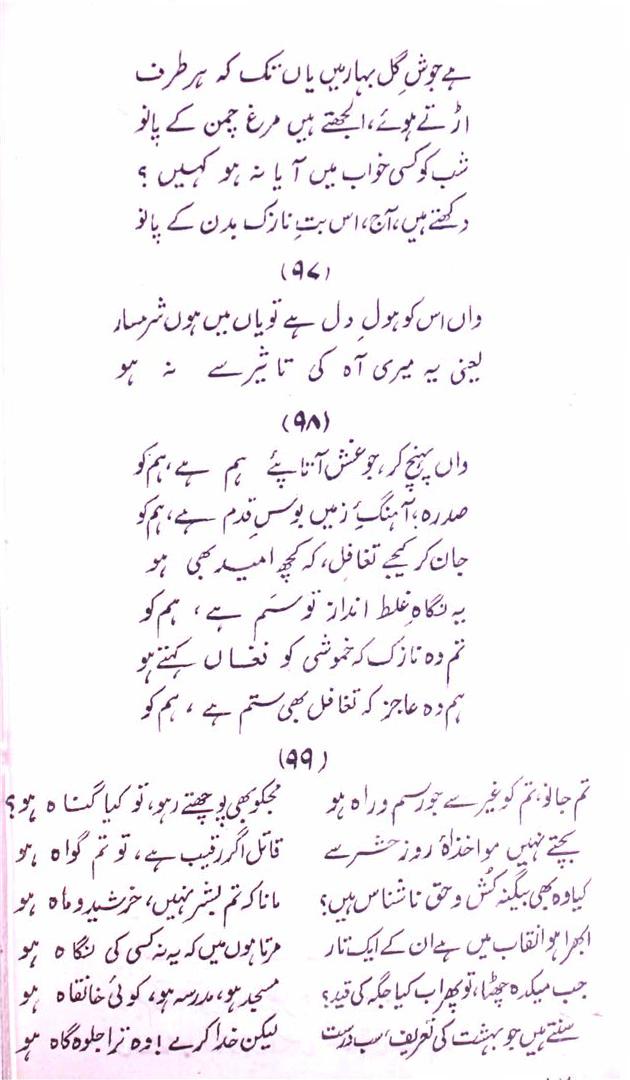 ہے جوشِ گل بہار میں یاں تک کہ ہر طرف
اڑتے ہوئے، الجھتے ہیں مرغِ چمن کے پانو
شب کو کسی خواب میں آیا نہ ہو کہیں ؟
دکھتے ہیں، آج، اس بتِ نازک بدن کے پانو
(۹۷)
واں اس کو ہولِ دل ہے تو یاں میں ہوں شرمسار
یعنی یہ میری آہ کی تاثیر سے نہ ہو
(۹۸)
واں پہنچ کر، جو غش آتا پئے ہم ہے، ہم کو
صد رہ، آہنگِ زمیں بوسِ قدم ہے، ہم کو
جان کر کیجے تغافل، کہ کچھ امید بھی ہو
یہ نگاہِ غلط انداز تو سَم ہے ، ہم کو
تم وہ نازک کہ خموشی کو فغاں کہتے ہو
ہم وہ عاجز کہ تغافل بھی ستم ہے ، ہم کو
(۹۹)
تم جانو، تم کو غیر سے جو رسم و راہ ہو مجکو بھی پوچھتے رہو، تو کیا گناہ ہو؟
بچتے نہیں مواخذۂ روزِ حشر سے قاتل اگر رقیب ہے، تو تم گواہ ہو
کیا وہ بھی بیگنہ کُش و حق ناشناس ہیں؟ مانا کہ تم بشر نہیں، خرشید و ماہ ہو
ابھرا ہوا نقاب میں ہے ان کے ایک تار مرتا ہوں میں کہ یہ نہ کسی کی نگاہ ہو
جب میکدہ چھٹا، تو پھر اب کیا جگہ کی قید؟ مسجد ہو، مدرسہ ہو، کوئی خانقاہ ہو
سنتے ہیں جو بہشت کی تعریف، سب درست لیکن خدا کرے ! وہ ترا جلوہ گاہ ہو